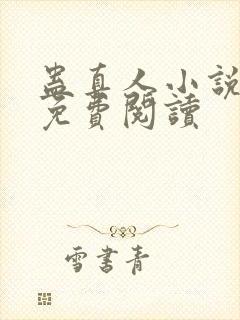 蠱真人小說
免費閱讀
雪書青